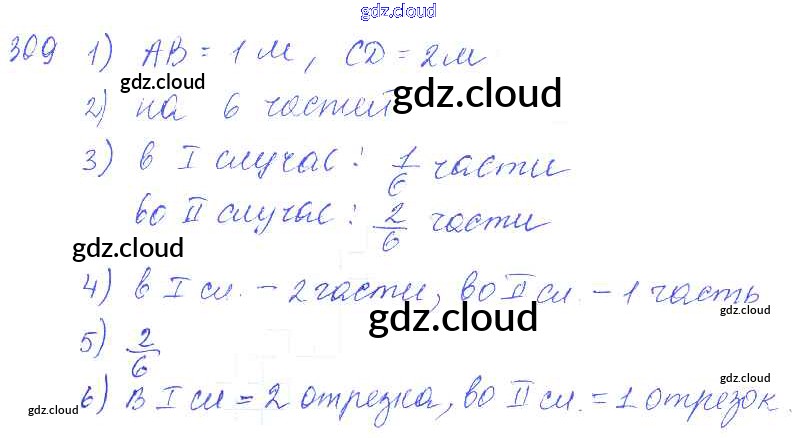 gdz.cloud
309 1) AB = 1 м, CD = 2 м
gdz.cloud
gdz.cloud
2) на 6 частей
3) в I случае: 1/6 части
во II случае: 2/6 части
gdz.cloud
4) в I сл. – 2 части, во II сл. – 1 часть
gdz.cloud
gdz.cloud
5) 2/6
6) В I сл = 2 отрезка, во II сл. = 1 отрезок.
gdz.cloud
gdz.cloud